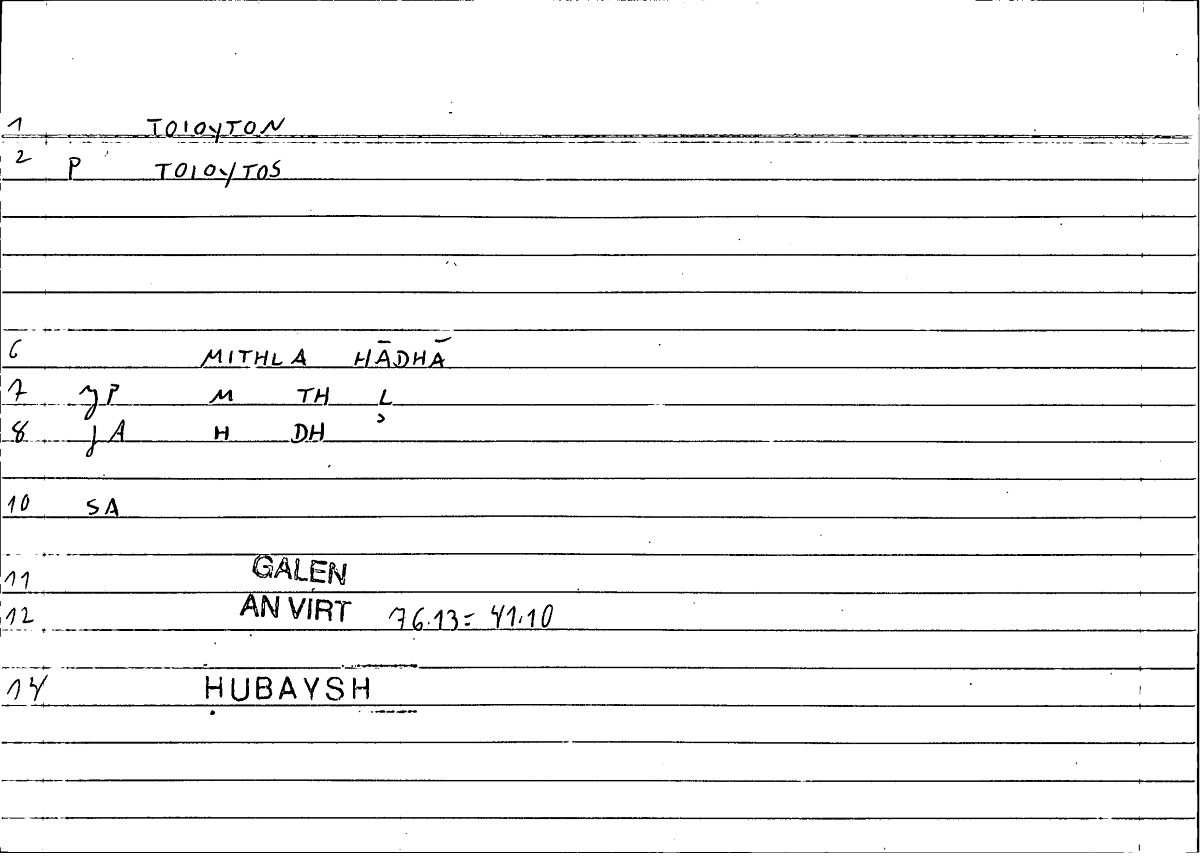 1 TOIOYTON
2 P TOIOYTOS
6 MITHLA HĀDHĀ
7 JP M TH L
8 JA H DH ʾ
10 SA
11 GALEN
12 AN VIRT 76.13= 41.10
14 HUBAYSH